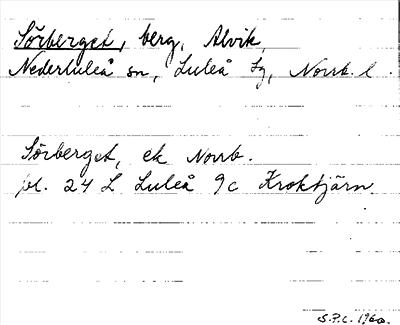 Sörberget, berg, Alvik,
Nederluleå sn, Luleå tg, Norrb. l.
Sörberget, ek Norrb.
bl. 24 L Luleå 9c Kroktjärn.
S.P.L. 1960.